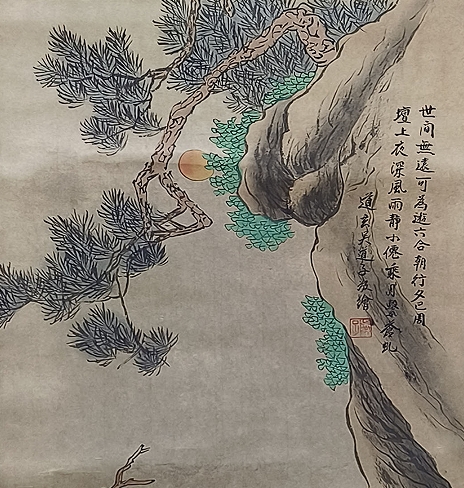 世间無遠可為遊六合朝行夕已周
壇上夜深風雨靜小僊乘月擊蒼虬
道玄吴道子敬繪